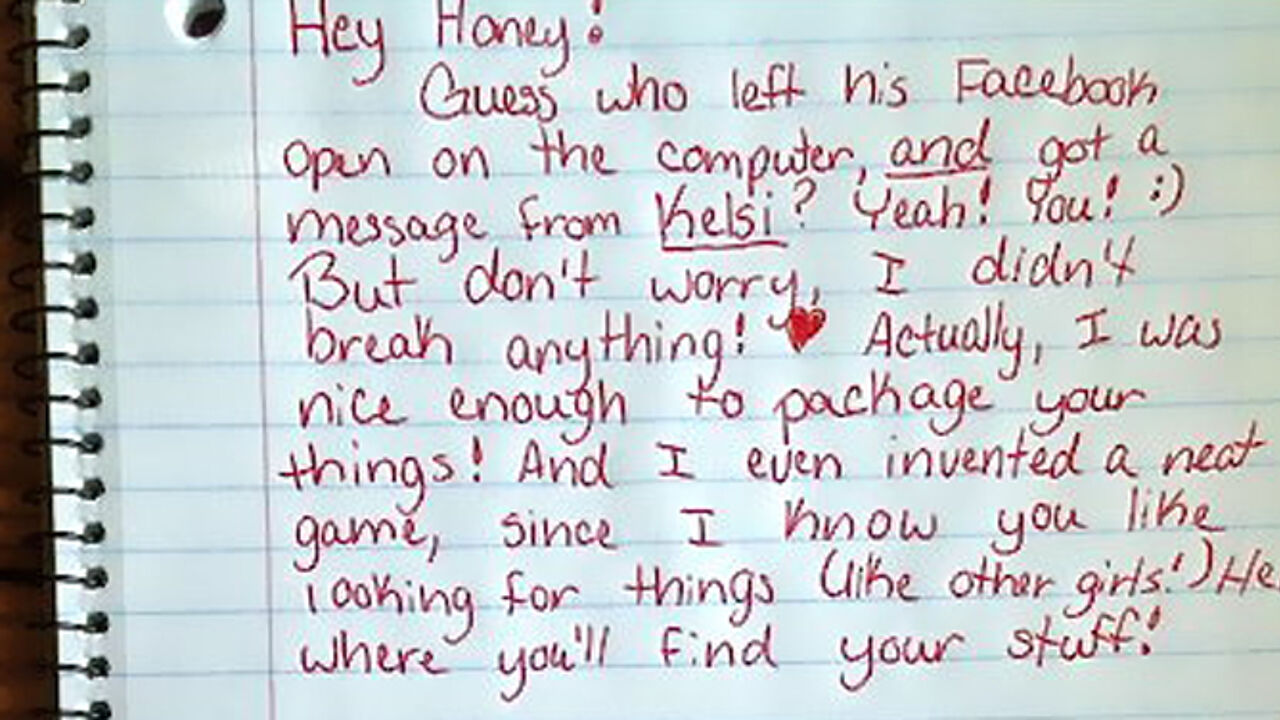 Hey Honey!
Guess who left his Facebook
open on the computer, and got a
message from Kelsi? Yeah! You! :)
But don't worry, I didn't
break anything! ♥ Actually, I was
nice enough to package your
things! And I even invented a neat
game, since I know you like
looking for things (like other girls!)
where you'll find your stuff!